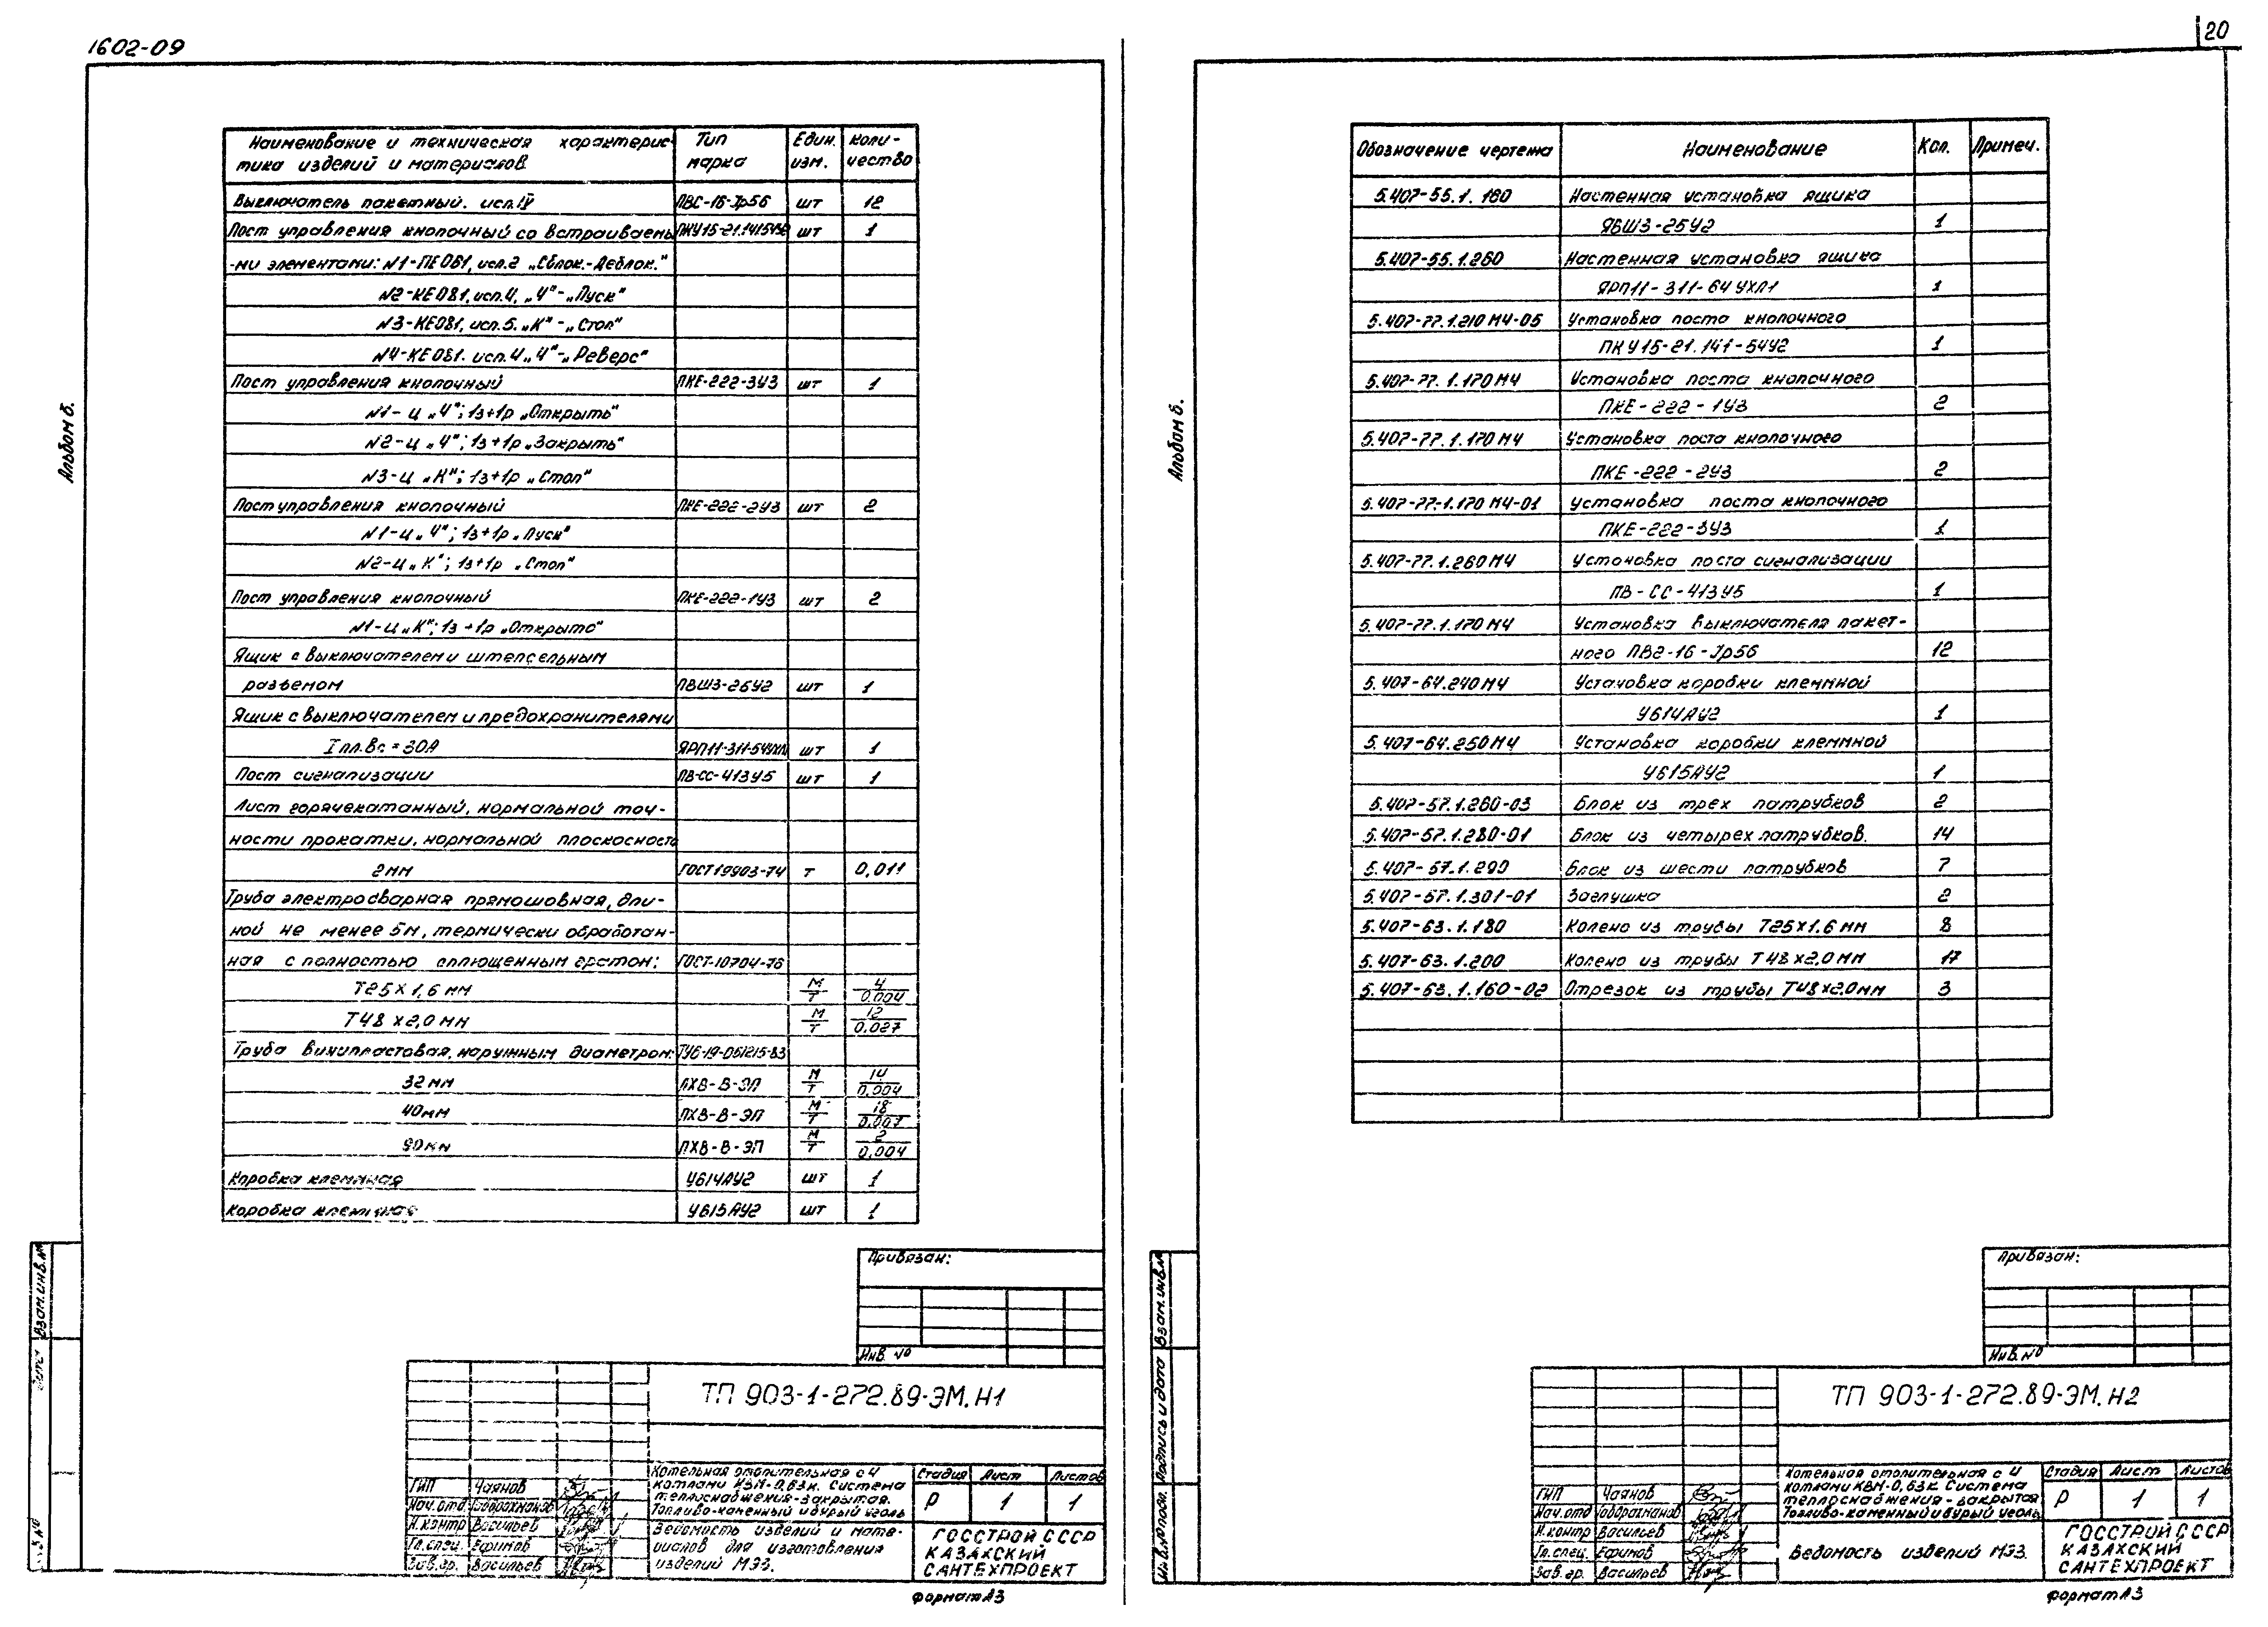 1602-09
20
Альбом 6.
Наименование и техническая характерис- Тип Един. Коли-
тика изделий и материалов марка изм. чество
Выключатель пакетный. исп.IV ПВС-16-Jp56 шт 12
Пост управления кнопочный со встраиваемы ПКУ15-21.141549 шт 1
-ми элементами: N1-ПЕ081, исп.2 „Сблок.-Деблок."
N2-КЕ081, исп.4, „Ч"-„Пуск"
N3-КЕ081, исп.5. „К"-„Стоп"
N4-КЕ081. исп.4 „Ч"-„Реверс"
Пост управления кнопочный ПКЕ-222-3У3 шт 1
N1-ц „Ч"; 1з+1р „Открыть"
N2-ц „Ч"; 1з+1р „Закрыть"
N3-ц „К"; 1з+1р „Стоп"
Пост управления кнопочный ПКЕ-222-2У3 шт 2
N1-ц „Ч"; 1з+1р „Пуск"
N2-ц „К"; 1з+1р „Стоп"
Пост управления кнопочный ПКЕ-222-1У3 шт 2
N1-ц „К"; 1з+1р „Открыто"
Ящик с выключателем и штепсельным
разъемом ПВШ3-25У2 шт 1
Ящик с выключателем и предохранителями
Iпл.вс = 30А ЯРП11-311-54УХЛ шт 1
Пост сигнализации ПВ-СС-413У5 шт 1
Лист горячекатанный, нормальной точ-
ности прокатки, нормальной плоскосност
2мм ГОСТ19903-74 т 0,011
Труба электросварная прямошовная, дли-
ной не менее 5м, термически обработан-
ная с полностью сплющенным гратом: ГОСТ-10704-76
Т25×1,6 мм м/т 4/0.004
Т48×2,0 мм м/т 12/0.027
Труба винипластовая, наружным диаметром: ТУ6-19-051215-83
32мм ПХВ-В-ЭП м/т 14/0,004
40мм ПХВ-В-ЭП м/т 18/0,007
90мм ПХВ-В-ЭП м/т 2/0,004
Коробка клеммная У614АУ2 шт 1
Коробка клеммная У615АУ2 шт 1
Взам.инв.№
Привязан:
Инв. №
ТП 903-1-272.89-ЭМ.Н1
ГИП Чаянов
Нач.отд Говдрахманов
Н.контр Васильев
Гл.спец. Ефимов
Зав.гр. Васильев
Котельная отопительная с 4
котлами КВм-0,63к. Система
теплоснабжения-закрытая.
Топливо-каменный и бурый уголь
Стадия Лист Листов
Р 1 1
Ведомость изделий и мате-
риалов для изготовления
изделий МЭЗ.
ГОССТРОЙ СССР
КАЗАХСКИЙ
САНТЕХПРОЕКТ
Формат А3
Альбом 6.
Обозначение чертежа Наименование Кол. Примеч.
5.407-55.1.160 Настенная установка ящика
ЯВШ3-25У2 1
5.407-55.1.260 Настенная установка ящика
ЯРП11-311-64 УХЛ1 1
5.407-77.1.210 МЧ-05 Установка поста кнопочного
ПКУ15-21.141-54У2 1
5.407-77.1.170МЧ Установка поста кнопочного
ПКЕ-222-1У3 2
5.407-77.1.170 МЧ Установка поста кнопочного
ПКЕ-222-2У3 2
5.407-77.1.170 МЧ-01 Установка поста кнопочного
ПКЕ-222-3У3 1
5.407-77.1.260МЧ Установка поста сигнализации
ПВ-СС-413У5 1
5.407-77.1.170МЧ Установка выключателя пакет-
ного ПВ2-16-Jp56 12
5.407-64.240МЧ Установка коробки клеммной
У614АУ2 1
5.407-64.250МЧ Установка коробки клеммной
У615АУ2 1
5.407-57.1.260-03 Блок из трех патрубков 2
5.407-57.1.280-01 Блок из четырех патрубков. 14
5.407-57.1.290 Блок из шести патрубков 7
5.407-57.1.301-01 Заглушка 2
5.407-63.1.180 Колено из трубы Т25×1.6 мм 8
5.407-63.1.200 Колено из трубы Т48×2,0 мм 17
5.407-63.1.160-02 Отрезок из трубы Т48×2.0мм 3
Инв.№подл. Подпись и дата Взам.инв.№
Привязан:
Инв.№
ТП 903-1-272.89-ЭМ.Н2
ГИП Чаянов
Нач.отд Говдрахманов
Н.контр Васильев
Гл.спец. Ефимов
Зав.гр. Васильев
Котельная отопительная с 4
котлами КВм-0,63к Система
теплоснабжения-закрытая
Топливо-каменный и бурый уголь
Стадия Лист Листов
Р 1 1
Ведомость изделий МЭЗ.
ГОССТРОЙ СССР
КАЗАХСКИЙ
САНТЕХПРОЕКТ
Формат А3